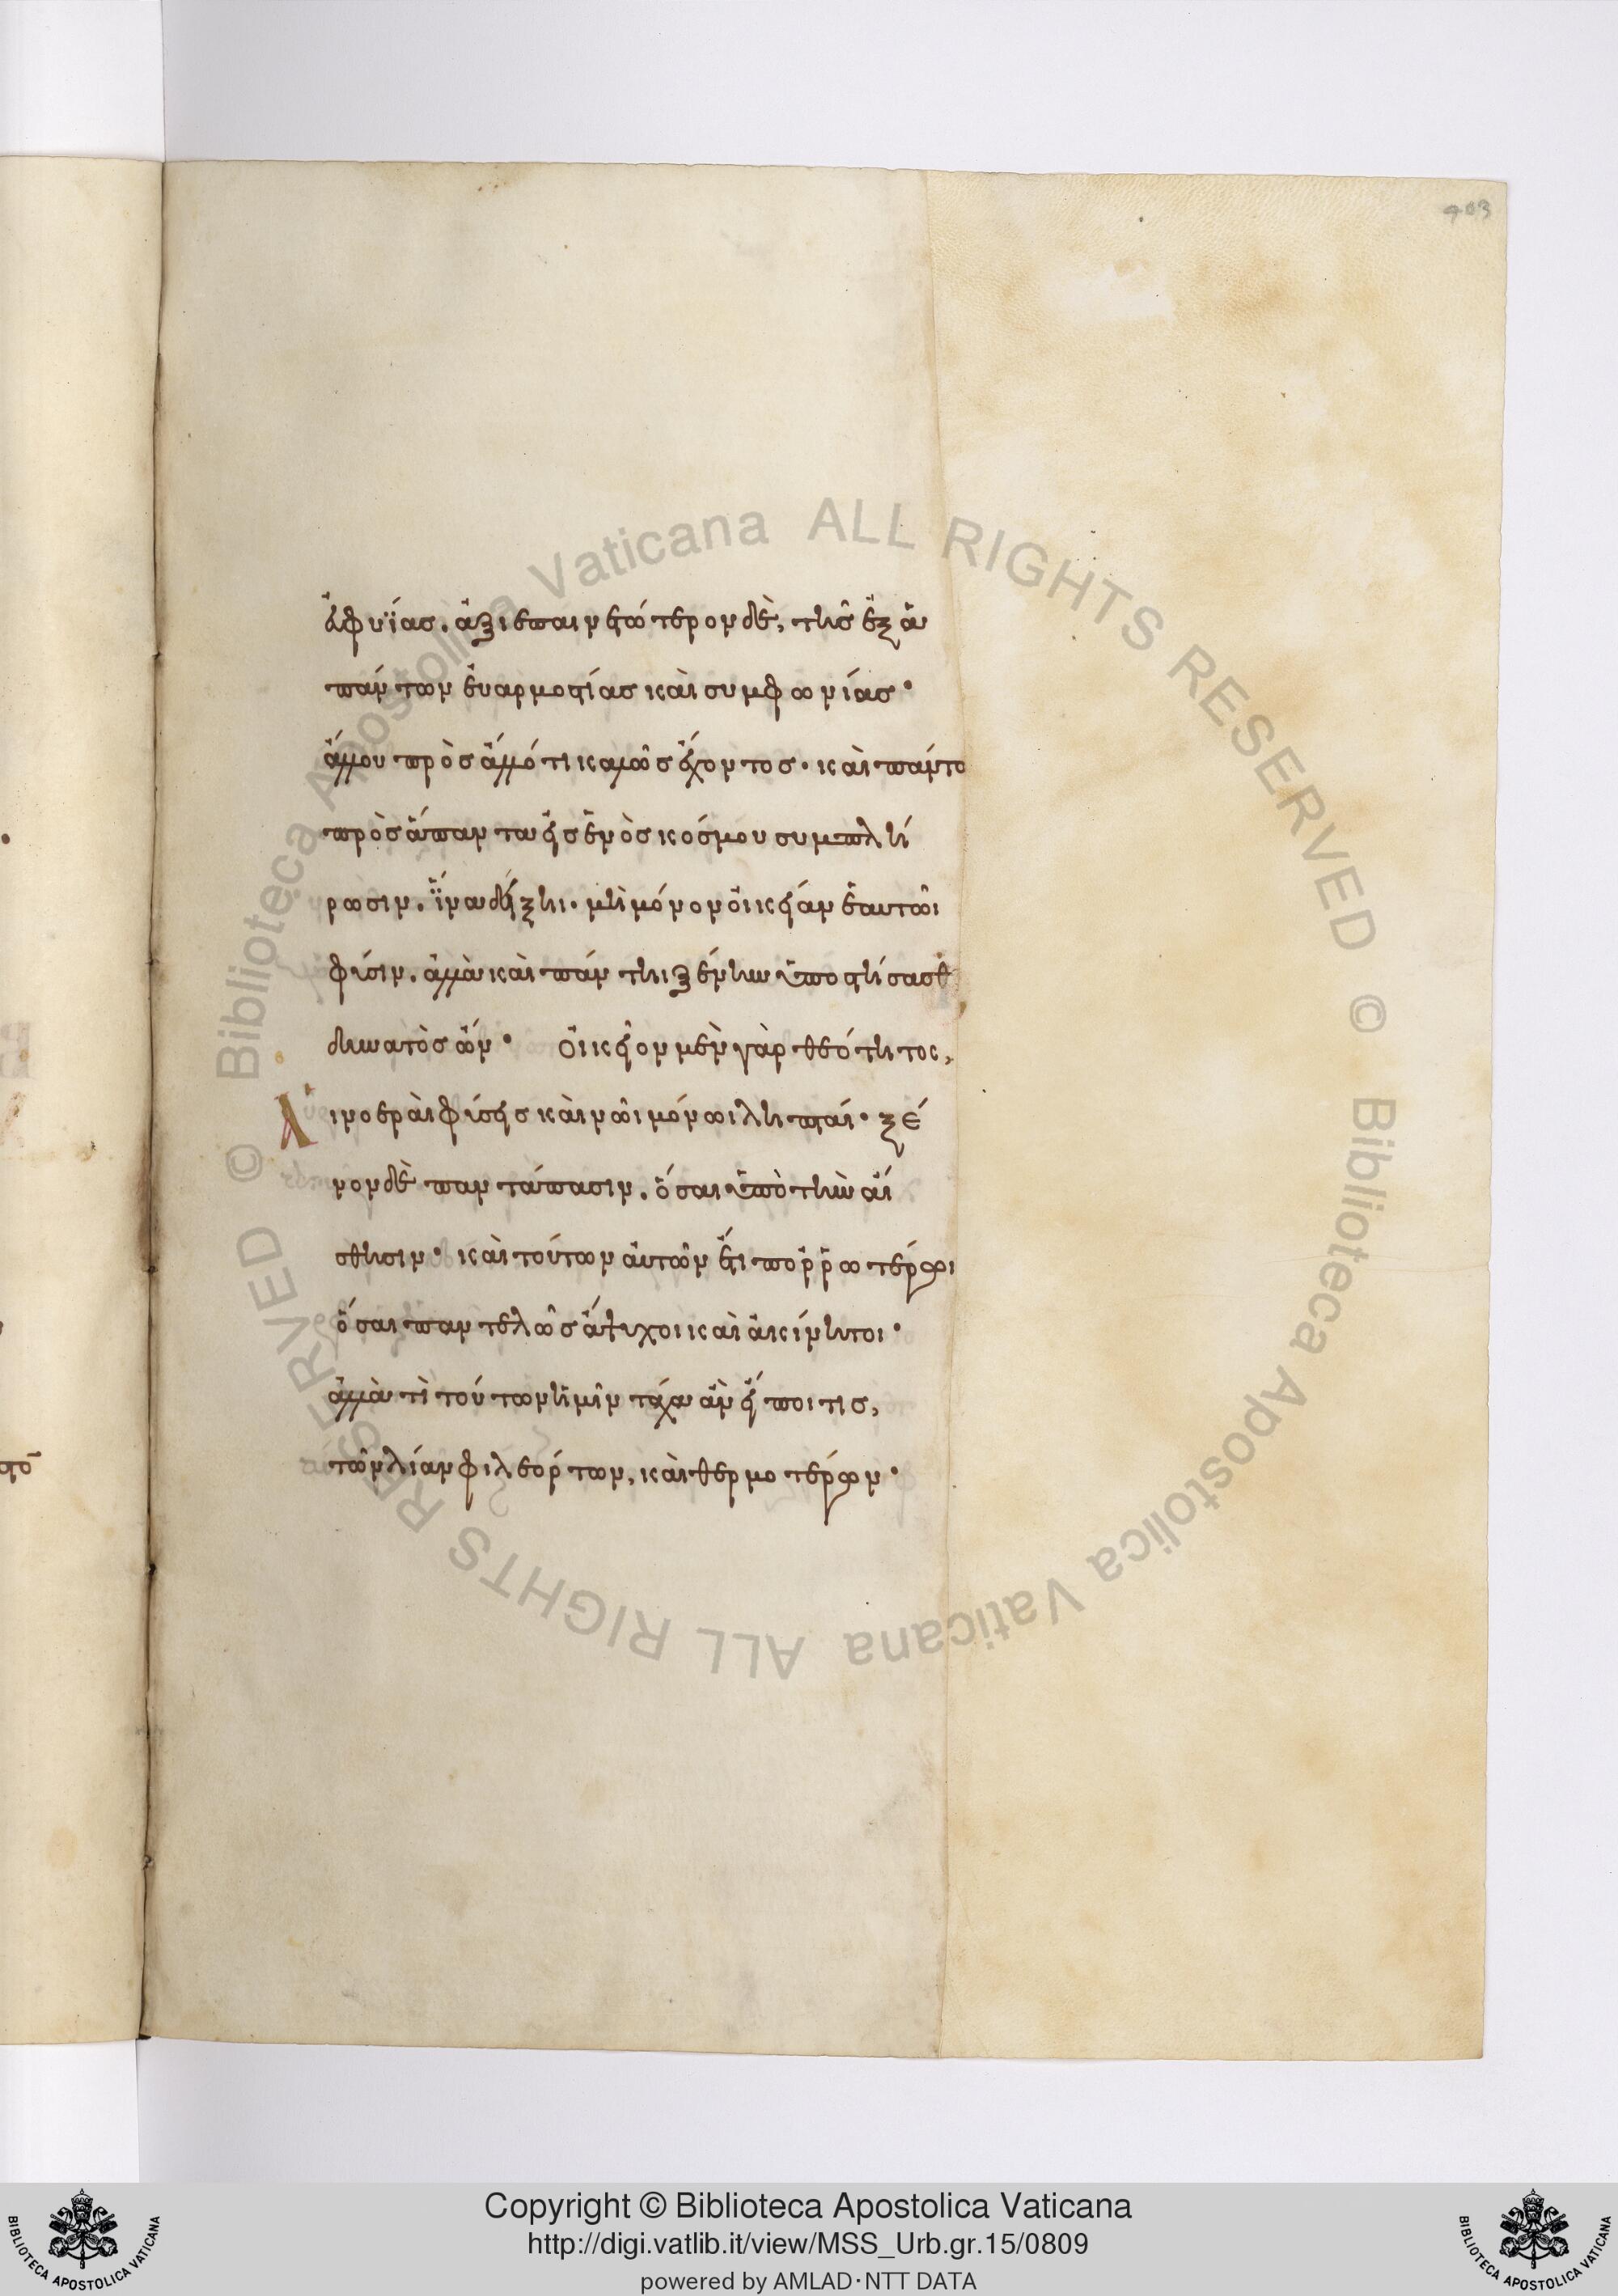 403
ἀφυΐας. ἀξιεπαινετώτερον δὲ, τῆς ἐξ ἁ
πάντων εὐαρμοστίας καὶ συμφωνίας·
ἄλλου πρὸς ἄλλό τι καλῶς ἔχοντος· καὶ πάντων
πρὸς ἅπαντα εἰς ἑνὸς κόσμου συμπλή
ρωσιν. ἵνα δείξῃ· μὴ μόνον οἰκείαν ἑαυτῶι
φύσιν. ἀλλὰ καὶ πάντη ξένην ὑποστήσασθ
δυνατὸς ὤν· οἰκεῖον μὲν γὰρ θεότητος,
Αἱ νοεραὶ φύσεις καὶ νῶι μόνωι ληπταί· ξέ
νον δὲ παντάπασιν. ὅσαι ὑπὸ τὴν αἴ
σθησιν· καὶ τούτων αὐτῶν ἔτι πορρωτέρωι
ὅσαι παντελῶς ἄψυχοι καὶ ἀκίνητοι·
ἀλλὰ τί τούτων ἡμῖν τάχα ἂν εἴποι τις,
τῶν λίαν φιλεόρτων, καὶ θερμοτέρων·
Copyright © Biblioteca Apostolica Vaticana
http://digi.vatlib.it/view/MSS_Urb.gr.15/0809
powered by AMLAD·NTT DATA
BIBLIOTECA APOSTOLICA VATICANA
BIBLIOTECA APOSTOLICA VATICANA
© Biblioteca Apostolica Vaticana ALL RIGHTS RESERVED
© Biblioteca Apostolica Vaticana ALL RIGHTS RESERVED